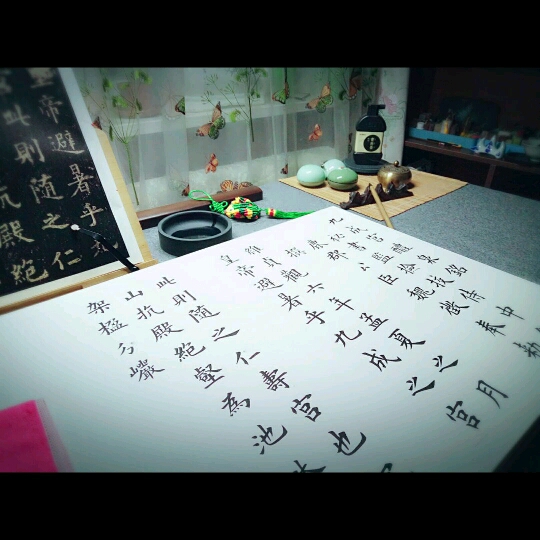 九成宮醴泉銘
秘書監檢校侍中
鹿郡公臣魏徵奉勅
撰
維貞觀六年孟夏之月
皇帝避暑乎九成之宮
此則隨之仁壽宮也
山抗殿絕壑為池
架楹分巖
帝避暑乎
此則隨之仁
抗殿絕